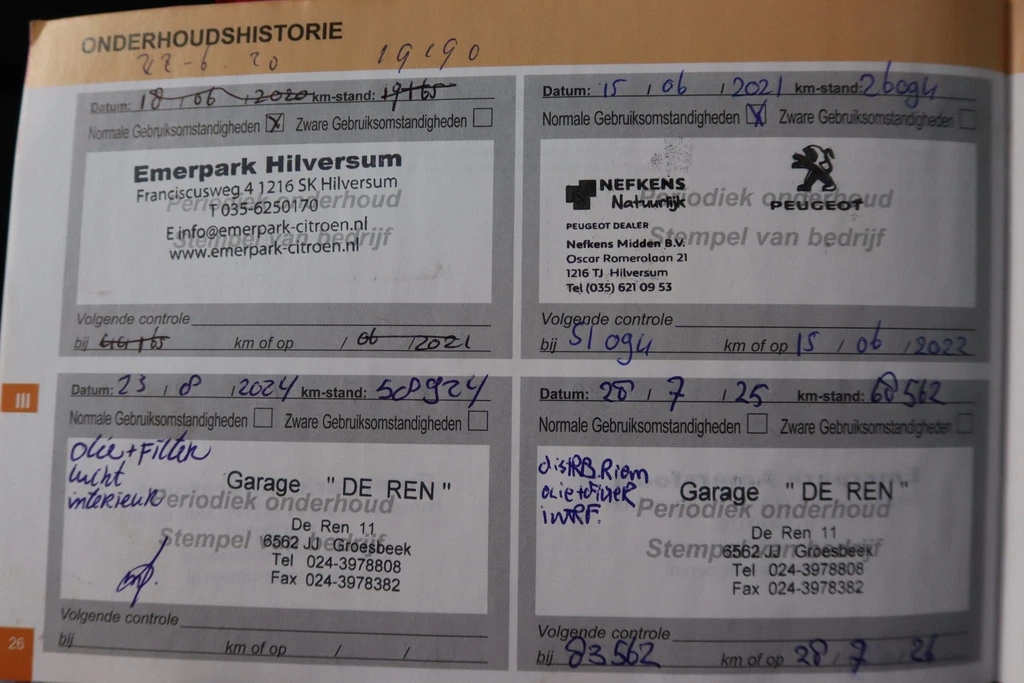 ONDERHOUDSHISTORIE
22-6-20 19190
Datum: 18 / 06 / 2020 km-stand: 19165
Normale Gebruiksomstandigheden X Zware Gebruiksomstandigheden
Emerpark Hilversum
Franciscusweg 4 1216 SK Hilversum
Periodiek onderhoud
T 035-6250170
E info@emerpark-citroen.nl
Stempel van bedrijf
www.emerpark-citroen.nl
Volgende controle
bij km of op / 06 / 2021
Datum: 15 / 06 / 2021 km-stand: 26094
Normale Gebruiksomstandigheden X Zware Gebruiksomstandigheden
NEFKENS
Natuurlijk
PEUGEOT
Periodiek onderhoud
PEUGEOT DEALER
Stempel van bedrijf
Nefkens Midden B.V.
Oscar Romerolaan 21
1216 TJ Hilversum
Tel (035) 621 09 53
Volgende controle
bij 51094 km of op 15 / 06 / 2022
III
Datum: 23 / 8 / 2024 km-stand: 508924
Normale Gebruiksomstandigheden Zware Gebruiksomstandigheden
olie + Filter
lucht
interieur
Garage "DE REN"
Periodiek onderhoud
De Ren 11
Stempel van bedrijf
6562 JJ Groesbeek
Tel 024-3978808
Fax 024-3978382
Volgende controle
bij km of op / /
Datum: 28 / 7 / 25 km-stand: 68562
Normale Gebruiksomstandigheden Zware Gebruiksomstandigheden
distRB. Riem
olie + FilteR
intRF.
Garage "DE REN"
Periodiek onderhoud
De Ren 11
Stempel van bedrijf
6562 JJ Groesbeek
Tel 024-3978808
Fax 024-3978382
Volgende controle
bij 83562 km of op 28 / 7 / 26
26